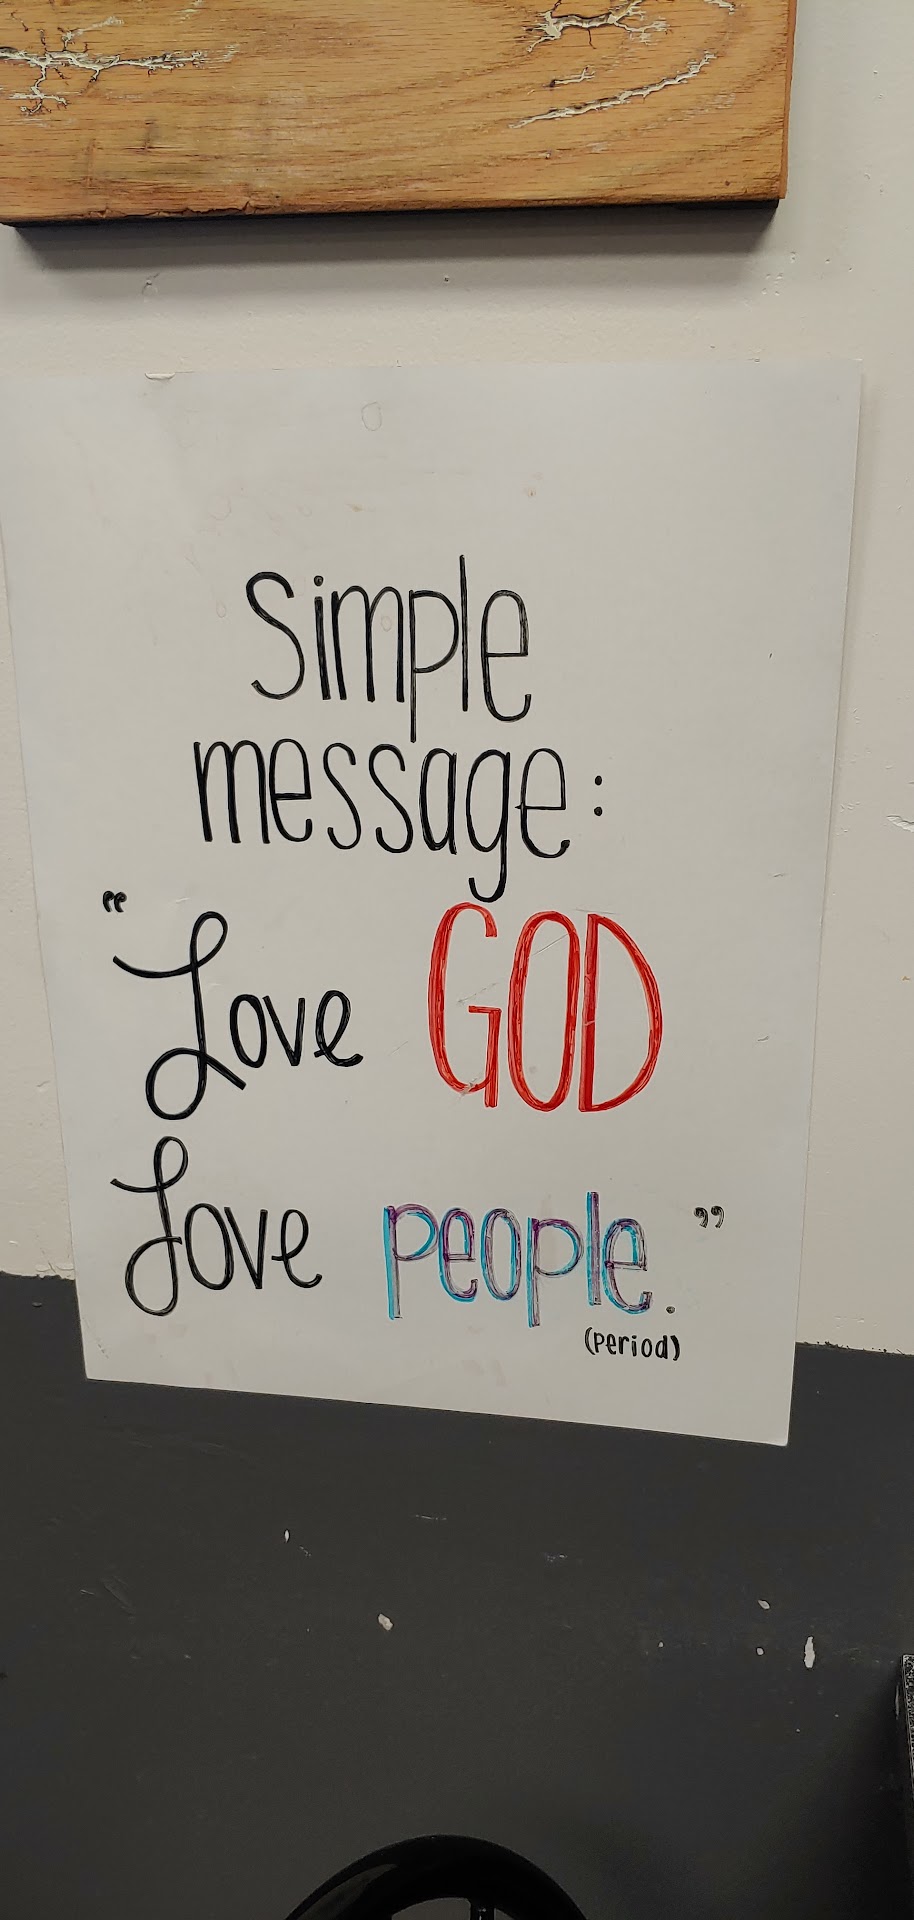 Simple
message:
“Love GOD
Love people.”
(period)